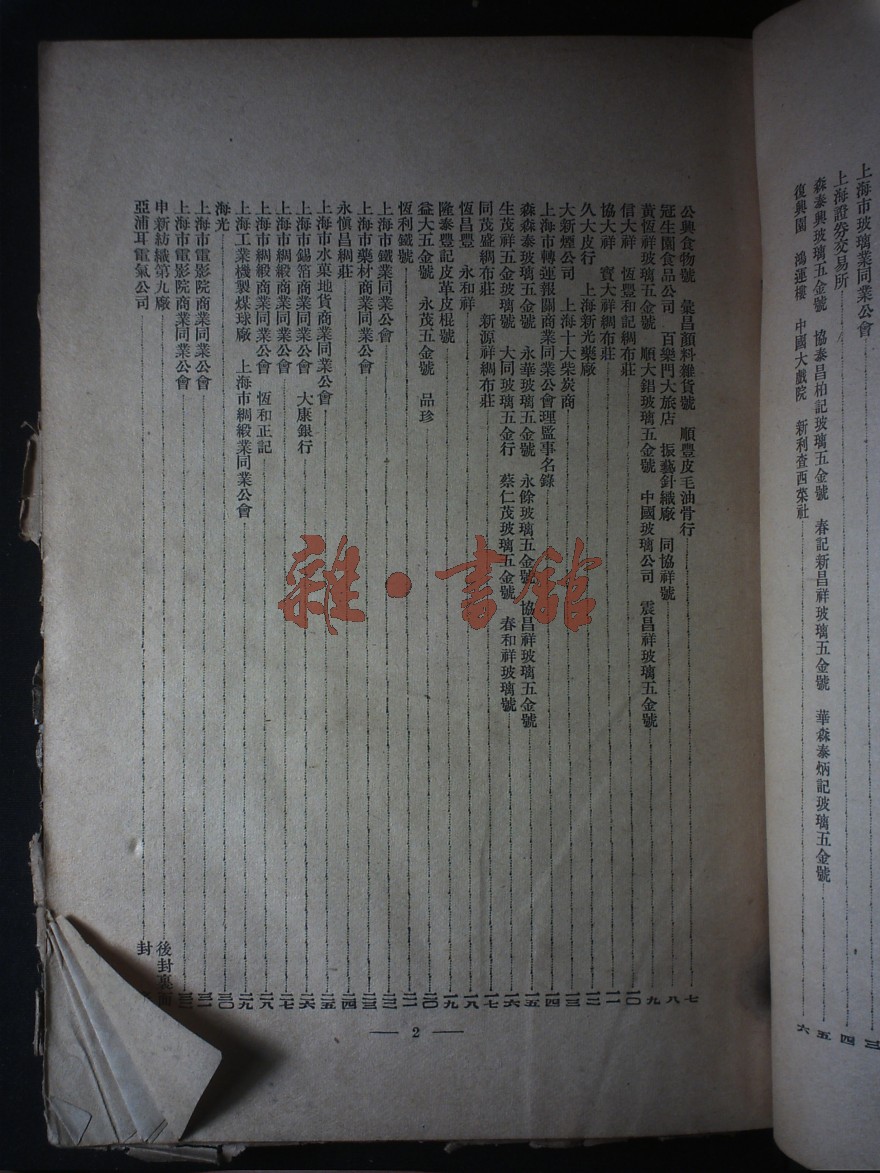 上海市玻璃業同業公會 三
上海證券交易所 四
森泰興玻璃五金號 協泰昌柏記玻璃五金號 春記新昌祥玻璃五金號 華森泰炳記玻璃五金號 五
復興園 鴻運樓 中國大戲院 新利查西菜社 六
公興食物號 彙昌顏料雜貨號 順豐皮毛油骨行 七
冠生園食品公司 百樂門大旅店 振藝針織廠 同協祥號 八
黃恆祥玻璃五金號 順大錩玻璃五金號 中國玻璃公司 震昌祥玻璃五金號 九
信大祥 恆豐和記綢布莊 一〇
協大祥 寶大祥綢布莊 一一
久大皮行 上海新光藥廠 一二
大新煙公司 上海十大柴炭商 一三
上海市轉運報關商業同業公會理監事名錄 一四
森森泰玻璃五金號 永華玻璃五金號 永餘玻璃五金號 協昌祥玻璃五金號 一五
生茂祥五金玻璃號 大同玻璃五金行 蔡仁茂玻璃五金號 春和祥玻璃號 一六
同茂盛綢布莊 新源祥綢布莊 一七
恆昌豐 永和祥 一八
隆泰豐記皮革皮棍號 一九
益大五金號 永茂五金號 品珍 二〇
恆利鐵號 二一
上海市鐵業同業公會 二二
上海市藥材商業同業公會 二三
永愼昌綢莊 二四
上海市水菓地貨商業同業公會 二五
上海市錫箔商業同業公會 大康銀行 二六
上海市綢緞商業同業公會 二七
上海市綢緞商業同業公會 恆和正記 二八
上海工業機製煤球廠 上海市綢緞業同業公會 二九
海光 三〇
上海市電影院商業同業公會 三一
上海市電影院商業同業公會 三二
申新紡織第九廠 後封裏面
亞浦耳電氣公司 封
— 2 —
雜·書館